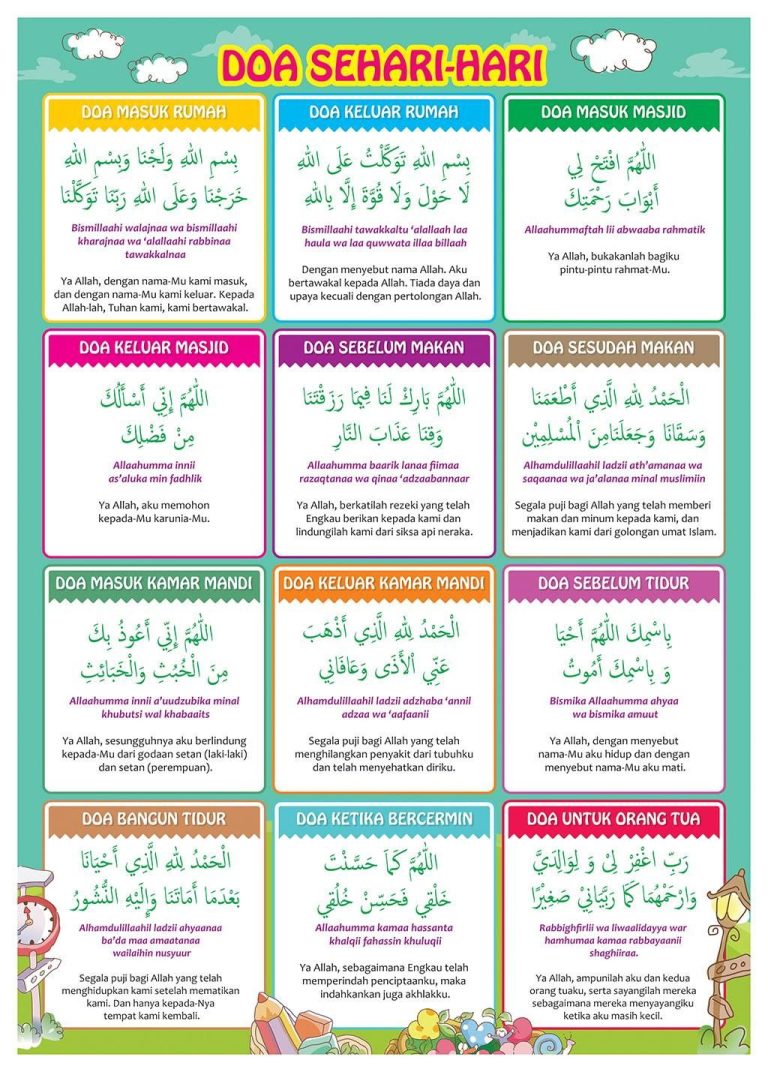 DOA SEHARI-HARI
DOA MASUK RUMAH
بِسْمِ اللهِ وَلَجْنَا وَبِسْمِ اللهِ
خَرَجْنَا وَعَلَى اللهِ رَبِّنَا تَوَكَّلْنَا
Bismillaahi walajnaa wa bismillaahi
kharajnaa wa ‘alallaahi rabbinaa
tawakkalnaa
Ya Allah, dengan nama-Mu kami masuk,
dan dengan nama-Mu kami keluar. Kepada
Allah-lah, Tuhan kami, kami bertawakal.
DOA KELUAR RUMAH
بِسْمِ اللهِ تَوَكَّلْتُ عَلَى اللهِ
لَا حَوْلَ وَلَا قُوَّةَ إِلَّا بِاللهِ
Bismillaahi tawakkaltu ‘alallaah laa
haula wa laa quwwata illaa billaah
Dengan menyebut nama Allah. Aku
bertawakal kepada Allah. Tiada daya dan
upaya kecuali dengan pertolongan Allah.
DOA MASUK MASJID
اللّٰهُمَّ افْتَحْ لِي
أَبْوَابَ رَحْمَتِكَ
Allaahummaftah lii abwaaba rahmatik
Ya Allah, bukakanlah bagiku
pintu-pintu rahmat-Mu.
DOA KELUAR MASJID
اللّٰهُمَّ إِنِّي أَسْأَلُكَ
مِنْ فَضْلِكَ
Allaahumma innii
as’aluka min fadhlik
Ya Allah, aku memohon
kepada-Mu karunia-Mu.
DOA SEBELUM MAKAN
اللّٰهُمَّ بَارِكْ لَنَا فِيمَا رَزَقْتَنَا
وَقِنَا عَذَابَ النَّارِ
Allaahumma baarik lanaa fiimaa
razaqtanaa wa qinaa ‘adzaabannaar
Ya Allah, berkatilah rezeki yang telah
Engkau berikan kepada kami dan
lindungilah kami dari siksa api neraka.
DOA SESUDAH MAKAN
الْحَمْدُ لِلهِ الَّذِي أَطْعَمَنَا
وَسَقَانَا وَجَعَلَنَامِنَ الْمُسْلِمِيْن
Alhamdulillaahil ladzii ath’amanaa wa
saqaanaa wa ja’alanaa minal muslimiin
Segala puji bagi Allah yang telah memberi
makan dan minum kepada kami, dan
menjadikan kami dari golongan umat Islam.
DOA MASUK KAMAR MANDI
اللّٰهُمَّ إِنِّي أَعُوذُ بِكَ
مِنَ الْخُبُثِ وَالْخَبَائِثِ
Allaahumma innii a’uudzubika minal
khubutsi wal khabaaits
Ya Allah, sesungguhnya aku berlindung
kepada-Mu dari godaan setan (laki-laki)
dan setan (perempuan).
DOA KELUAR KAMAR MANDI
الْحَمْدُ لِلهِ الَّذِي أَذْهَبَ
عَنِّي الْأَذَى وَعَافَانِي
Alhamdulillaahil ladzii adzhaba ‘annil
adzaa wa ‘aafaanii
Segala puji bagi Allah yang telah
menghilangkan penyakit dari tubuhku
dan telah menyehatkan diriku.
DOA SEBELUM TIDUR
بِاسْمِكَ اللّٰهُمَّ أَحْيَا
وَ بِاسْمِكَ أَمُوتُ
Bismika Allaahumma ahyaa
wa bismika amuut
Ya Allah, dengan menyebut
nama-Mu aku hidup dan dengan
menyebut nama-Mu aku mati.
DOA BANGUN TIDUR
الْحَمْدُ لِلهِ الَّذِي أَحْيَانَا
بَعْدَمَا أَمَاتَنَا وَإِلَيْهِ النُّشُورُ
Alhamdulillaahil ladzii ahyaanaa
ba’da maa amaatanaa
wailaihin nusyuur
Segala puji bagi Allah yang telah
menghidupkan kami setelah mematikan
kami. Dan hanya kepada-Nya
tempat kami kembali.
DOA KETIKA BERCERMIN
اللّٰهُمَّ كَمَا حَسَّنْتَ
خَلْقِي فَحَسِّنْ خُلُقِي
Allaahumma kamaa hassanta
khalqii fahassin khuluqii
Ya Allah, sebagaimana Engkau telah
memperindah penciptaanku, maka
indahkanlah juga akhlakku.
DOA UNTUK ORANG TUA
رَبِّ اغْفِرْ لِيْ وَ لِوَالِدَيَّ
وَارْحَمْهُمَا كَمَا رَبَّيَانِيْ صَغِيْرًا
Rabbighfirlii wa liwaalidayya war
hamhumaa kamaa rabbayaanii
shaghiiraa.
Ya Allah, ampunilah aku dan kedua
orang tuaku, serta sayangilah mereka
sebagaimana mereka menyayangiku
ketika aku masih kecil.